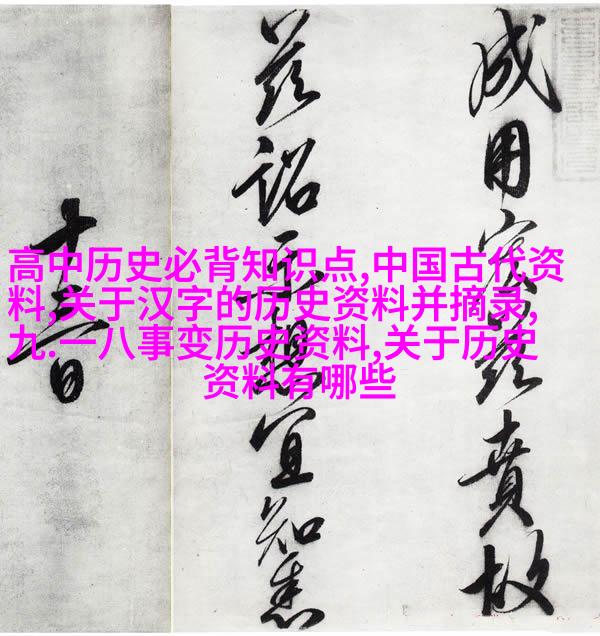 高中历史必背知识点,中国古代资
料,关于汉字的历史资料并摘录,
九.一八事变历史资料,关于历史
资料有哪些
成用宏茲賁故
茲詔示想宜知悉
十三日